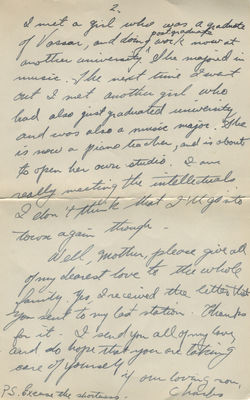 2.
I met a girl who was a graduate
of Vassar, and doing postgraduate work now at
another university. She majored in
music. The next time I went
out I met another girl who
had also just graduated university
and was also a music major. She
is now a piano teacher, and is about
to open her own studio. I am
really meeting the intellectuals
I don't think that I'll go into
town again though.
Well, Mother, please give all
of my dearest love to the whole
family. Yes, I received the letter that
you sent to my last station. Thanks
for it. I send you all of my love,
and do hope that you are taking
care of yourself.
Your loving son,
Charles
P.S. Excuse the shortness.